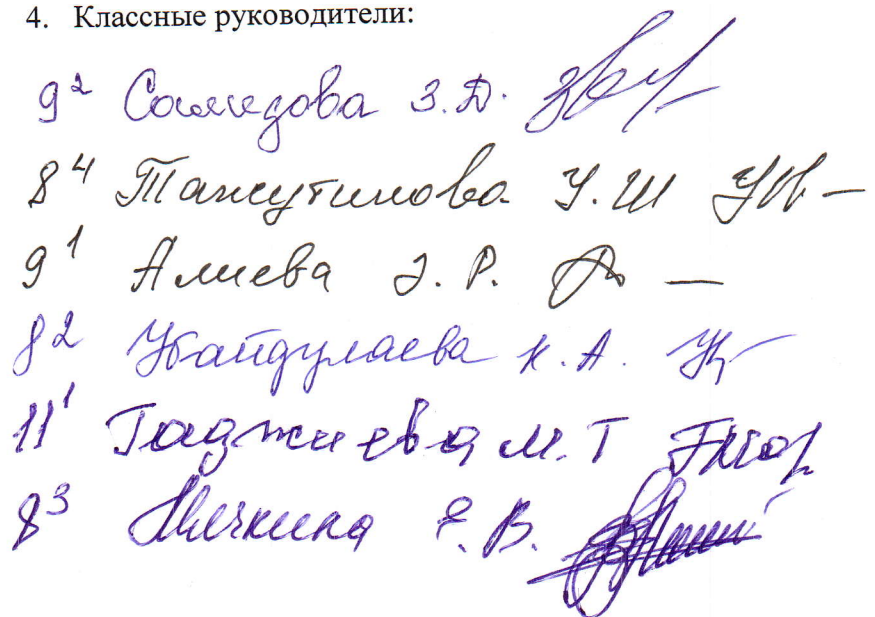 4. Классные руководители:
9² Самедова З.Д.
8⁴ Тажутинова У.Ш
9¹ Алиева З.Р.
8² Убайдулаева К.А.
11¹ Гаджиева М.Т
8³ Е.В.